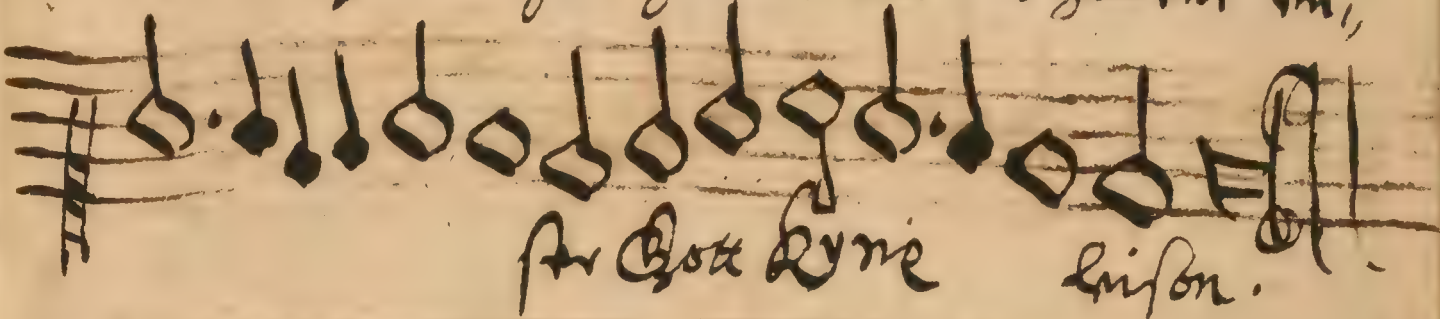 ster Gott Kyrie leison.